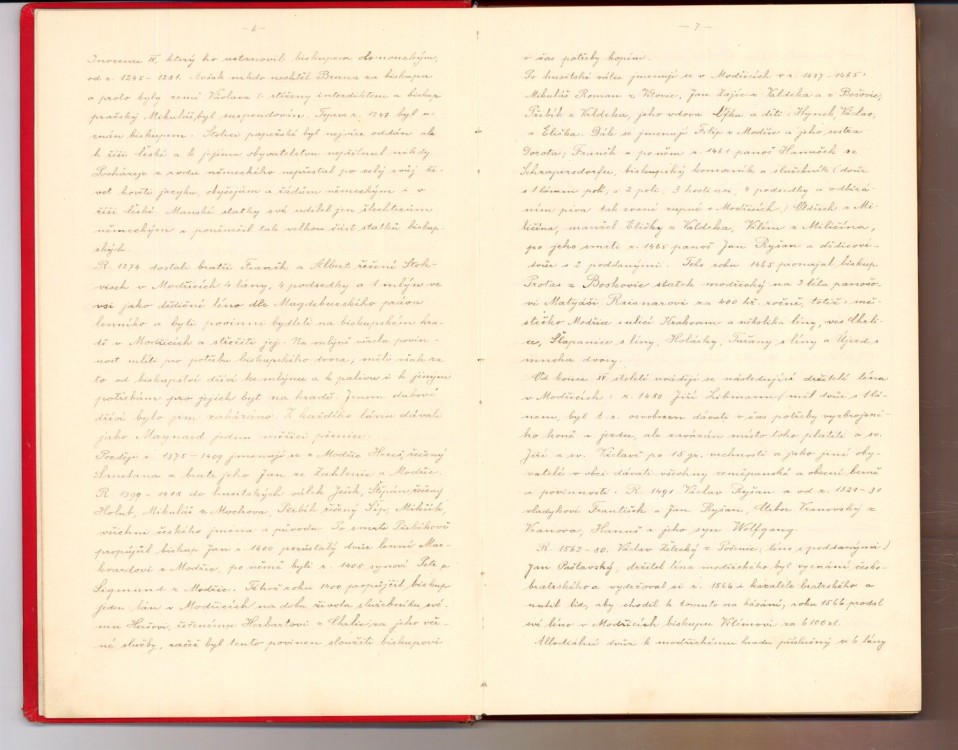 - 6 -
Inocenc IV. který ho ustanovil biskupem olomouckým,
od r. 1245 - 1281. Avšak nikdo nechtěl Bruna za biskupa
a proto byly země Václava I. stiženy interdiktem a biskup
pražský Mikuláš byl suspendován. Teprve r. 1247 byl u-
znán biskupem. Stolici papežské byl nejvíce oddán ale
k říši české a k jejímu obyvatelstvu nepřilnul nikdy
Pocházeje z rodu německého nepřestal po celý svůj ži-
vot hověti jazyku, obyčejům a řádům německým i v
říši české. Manské statky své udílel jen šlechticům
německým a poněmčil tak velkou část statků biskup-
ských.
R. 1274 dostali bratři Franěk a Albert řečení Stok-
visch v Modřicích 4 lány, 4 podsedky a 1 mlýn ve
vsi jako dědičné léno dle Magdeburského práva
lenního a byli povinni bydleti na biskupském hra-
dě v Modřicích a střežiti jej. Na mlýně vázla povin-
nost mlíti pro potřebu biskupského dvora, měli však za
to od biskupství dříví ke mlýnu a k palivu i k jiným
potřebám pro jejich byt na hradě. Jenom dubové
dříví bylo jim zakázáno. Z každého lánu dávali
jako Maynard jednu měřici pšenice.
Později r. 1375 - 1409 jmenují se z Modřic Hereš, řečený
Smetana a bratr jeho Jan ze Zahlenic a Modřic.
R. 1399 - 1418 do husitských válek Ješek, Štěpán, řečený
Holub, Mikuláš z Mochova, Přibík řečený Šíp, Mikšík,
všichni českého jména a původu. Po smrti Přibíkově
propůjčil biskup Jan r. 1400 pozůstalý dvůr lenní Mar-
kvardovi z Modřic, po němž byli r. 1408 synové Petr a
Sigmund z Modřic. Téhož roku 1400 propůjčil biskup
jeden lán v Modřicích na dobu života služebníku své-
mu Heršovi, řečenému Habartovi z Chrlic, za jeho věr-
né služby, začež byl tento povinen sloužiti biskupovi
- 7 -
v čas potřeby kopím.
Po husitské válce jmenují se v Modřicích v r. 1437 - 1465:
Mikuláš Roman z Vítovic, Jan Zajíc z Valdeka a z Bošovic,
Přibík z Valdeka, jeho vdova Ofka a děti: Hynek, Václav,
a Eliška. Dále se jmenují Filip z Modřic a jeho sestra
Dorota; Franěk a po něm r. 1461 panoš Hanušek ze
Schrapersdorfu, biskupský komorník a služebník (dvůr
s 1 lánem polí, s 2 poli, 3 hostinci, 4 podsedky a odbírá-
ním piva tak zvané supné v Modřicích.) Oldřich z Mi-
ličína, manžel Elišky z Valdeka, Vilém z Miličína,
po jeho smrti r. 1465 panoš Jan Ryšan a dědicové -
dvůr s 2 poddanými. Téhož roku 1465 pronajal biskup
Protas z Boskovic statek modřický na 3 léta panošo-
vi Matyáši Raisnarovi za 400 hř. ročně, totiž: mě-
stečko Modřice s ulicí Krakovem a několika lány, ves Chrli-
ce, Šlapanice s lány, Holásky, Tuřany s lány a Újezd s
mnoha dvory.
Od konce XV. století uvádějí se následující držitelé léna
v Modřicích: r. 1480 Jiří Libmann (měl dvůr s 1 lá-
nem, byl t. r. osvobozen dávati v čas potřeby vyzbrojené-
ho koně a jezdce, ale zavázán místo toho platiti o sv.
Jiří a sv. Václavě po 15 gr. vrchnosti a jako jiní oby-
vatelé v obci dávati všechny zeměpanské a obecní berně
a povinnosti. R. 1491 Václav Ryšan a od r. 1521 - 31
vladykové František a Jan Ryšan, Ctibor Vranovský z
Vranova, Hanuš a jeho syn Wolfgang.
R. 1562 - 80. Václav Želecký z Počenic; (léno s poddanými)
Jan Pučlavský, držitel léna modřického byl vyznání česko-
bratrského a vydržoval si r. 1564 i kazatele bratrského a
nutil lid, aby chodil k tomuto na kázání, roku 1566 prodal
své léno v Modřicích biskupu Vilémovi za 6100 zl.
Allodiální dvůr k modřickému hradu příslušný se 6 lány